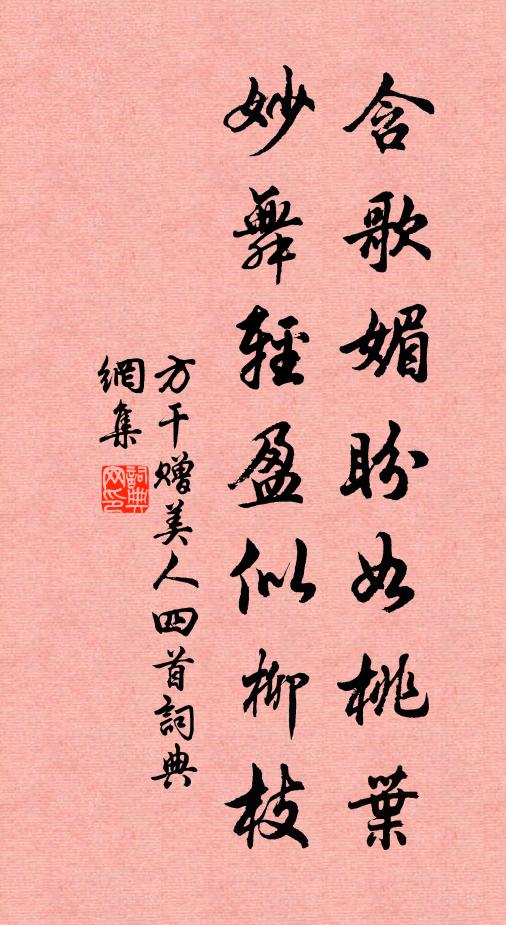 含歌媚盼如桃葉
妙舞輕盈似柳枝
方干贈美人四首詞典
網集
詞典網印